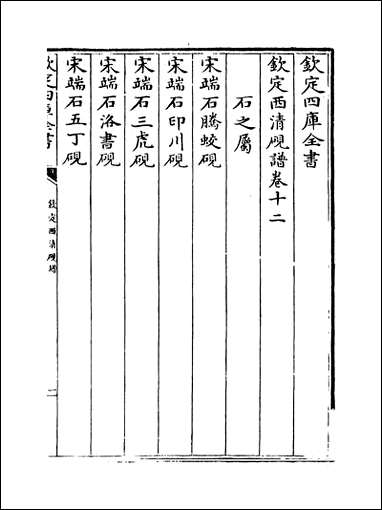 欽定四庫全書
欽定西清硯譜卷十二
石之屬
宋端石騰蛟硯
宋端石印川硯
宋端石三虎硯
宋端石洛書硯
宋端石五丁硯
欽定四庫全書
欽定西清硯譜
一